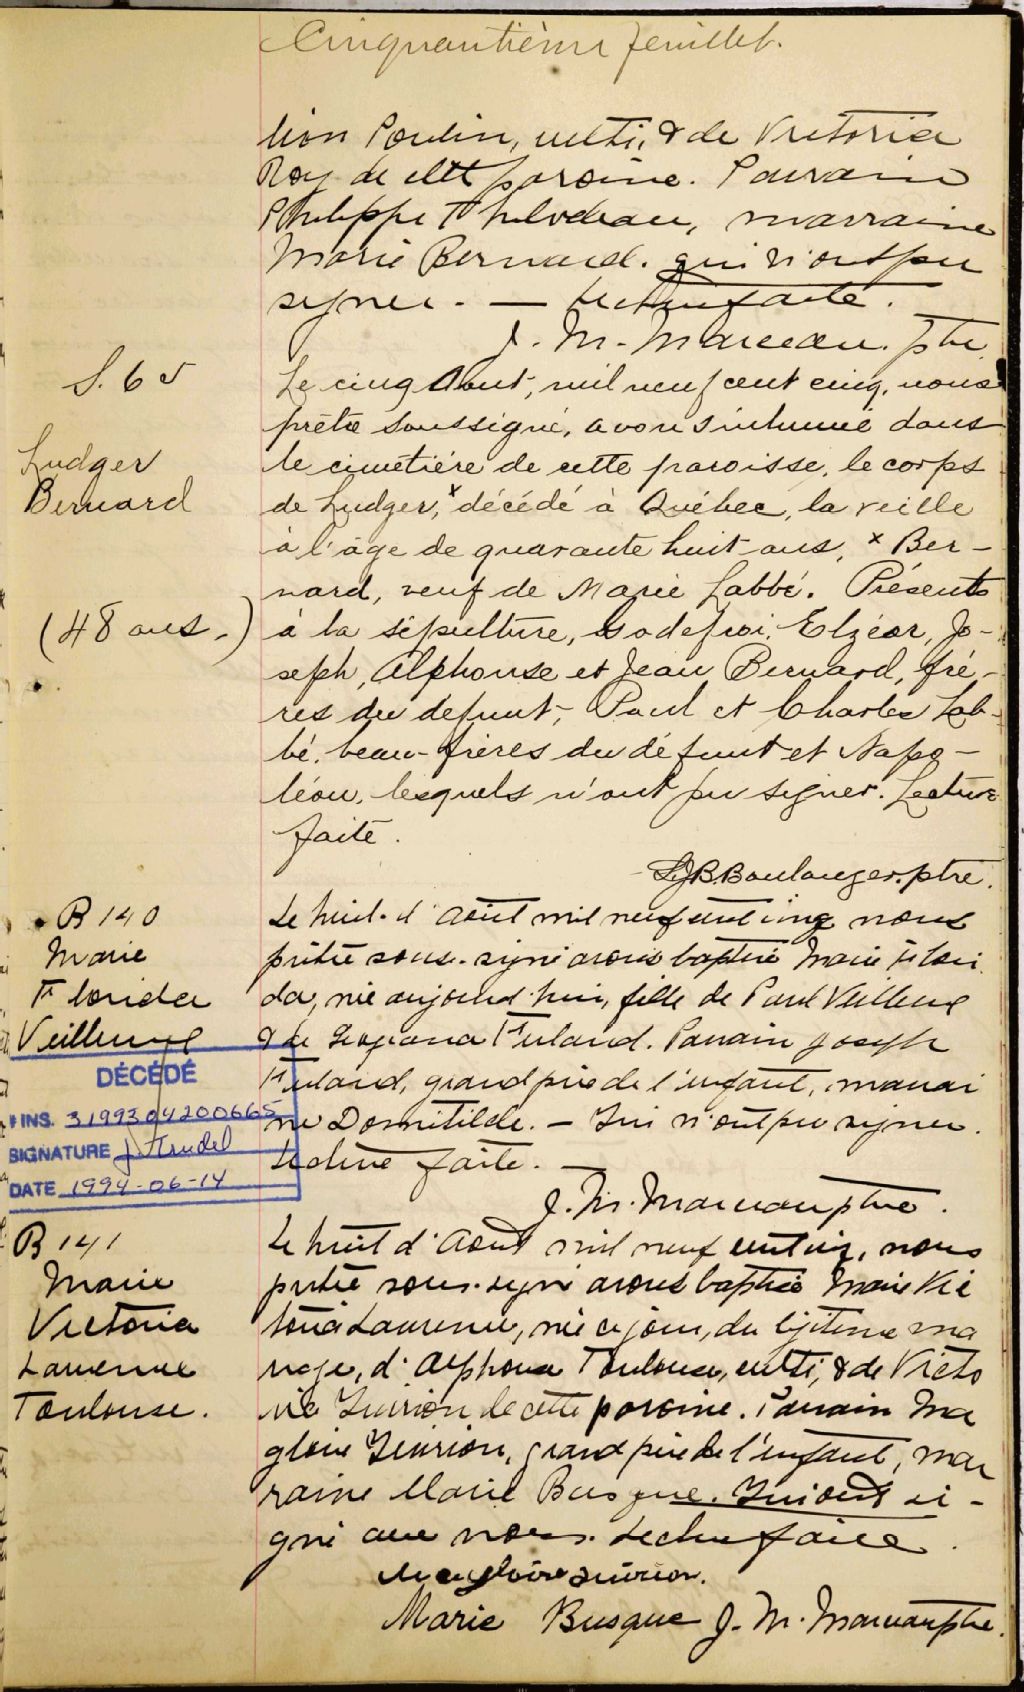 Cinquantième feuillet.
lion Poulin, culti, & de Victoria
Roy de cette paroisse. Parrain
Philippe Thibodeau, marraine
Marie Bernard. qui n'ont pu
signer. — Lecture faite.
J. M. Marceau. ptre
S. 65
Ludger
Bernard
(48 ans.)
Le cinq Aout, mil neuf cent cinq, nous
prêtre soussigné, avons inhumé dans
le cimetiére de cette paroisse, le corps
de Ludger, x décédé à Québec, la veille
à l'âge de quarante huit ans, x Ber-
nard, veuf de Marie Labbé. Présents
à la sépulture, Godefroi, Elzéar, Jo-
seph, Alphonse et Jean Bernard, fré-
res du defunt, Paul et Charles Lab-
bé, beau-frères du défunt et Napo-
léon, lesquels n'ont pu signer. Lecture
faite.
J B Boulanger. ptre.
B 140
Marie
Florida
Veilleux
Le huit d'Août mil neuf cent cinq nous
prêtre sous-signé avons baptisé Marie Flori
da, née aujourd'hui, fille de Paul Veilleux
& de Fuland. Parrain Joseph
Fuland, grand père de l'enfant, marrai
ne Domitilde. — Qui n'ont pu signer.
Lecture faite. —
J. M. Marceau ptre.
DÉCÉDÉ
# INS. 3199304200665
SIGNATURE J Trudel
DATE 1994-06-14
B 141
Marie
Victoria
Laurence
Toulouse.
Le huit d'Aout mil neuf cent cinq, nous
prêtre sous-signé avons baptisé Marie Vic
toria Laurence, née ce jour, du légitime ma
riage, d'Alphonse Toulouse, culti, & de Victo
ria Quirion de cette paroisse. Parrain Ma
gloire Quirion, grand père de l'enfant, mar
raine Marie Busque. Qui ont si-
gné avec nous. Lecture faite.
Magloire Quirion.
Marie Busque J. M. Marceau ptre.